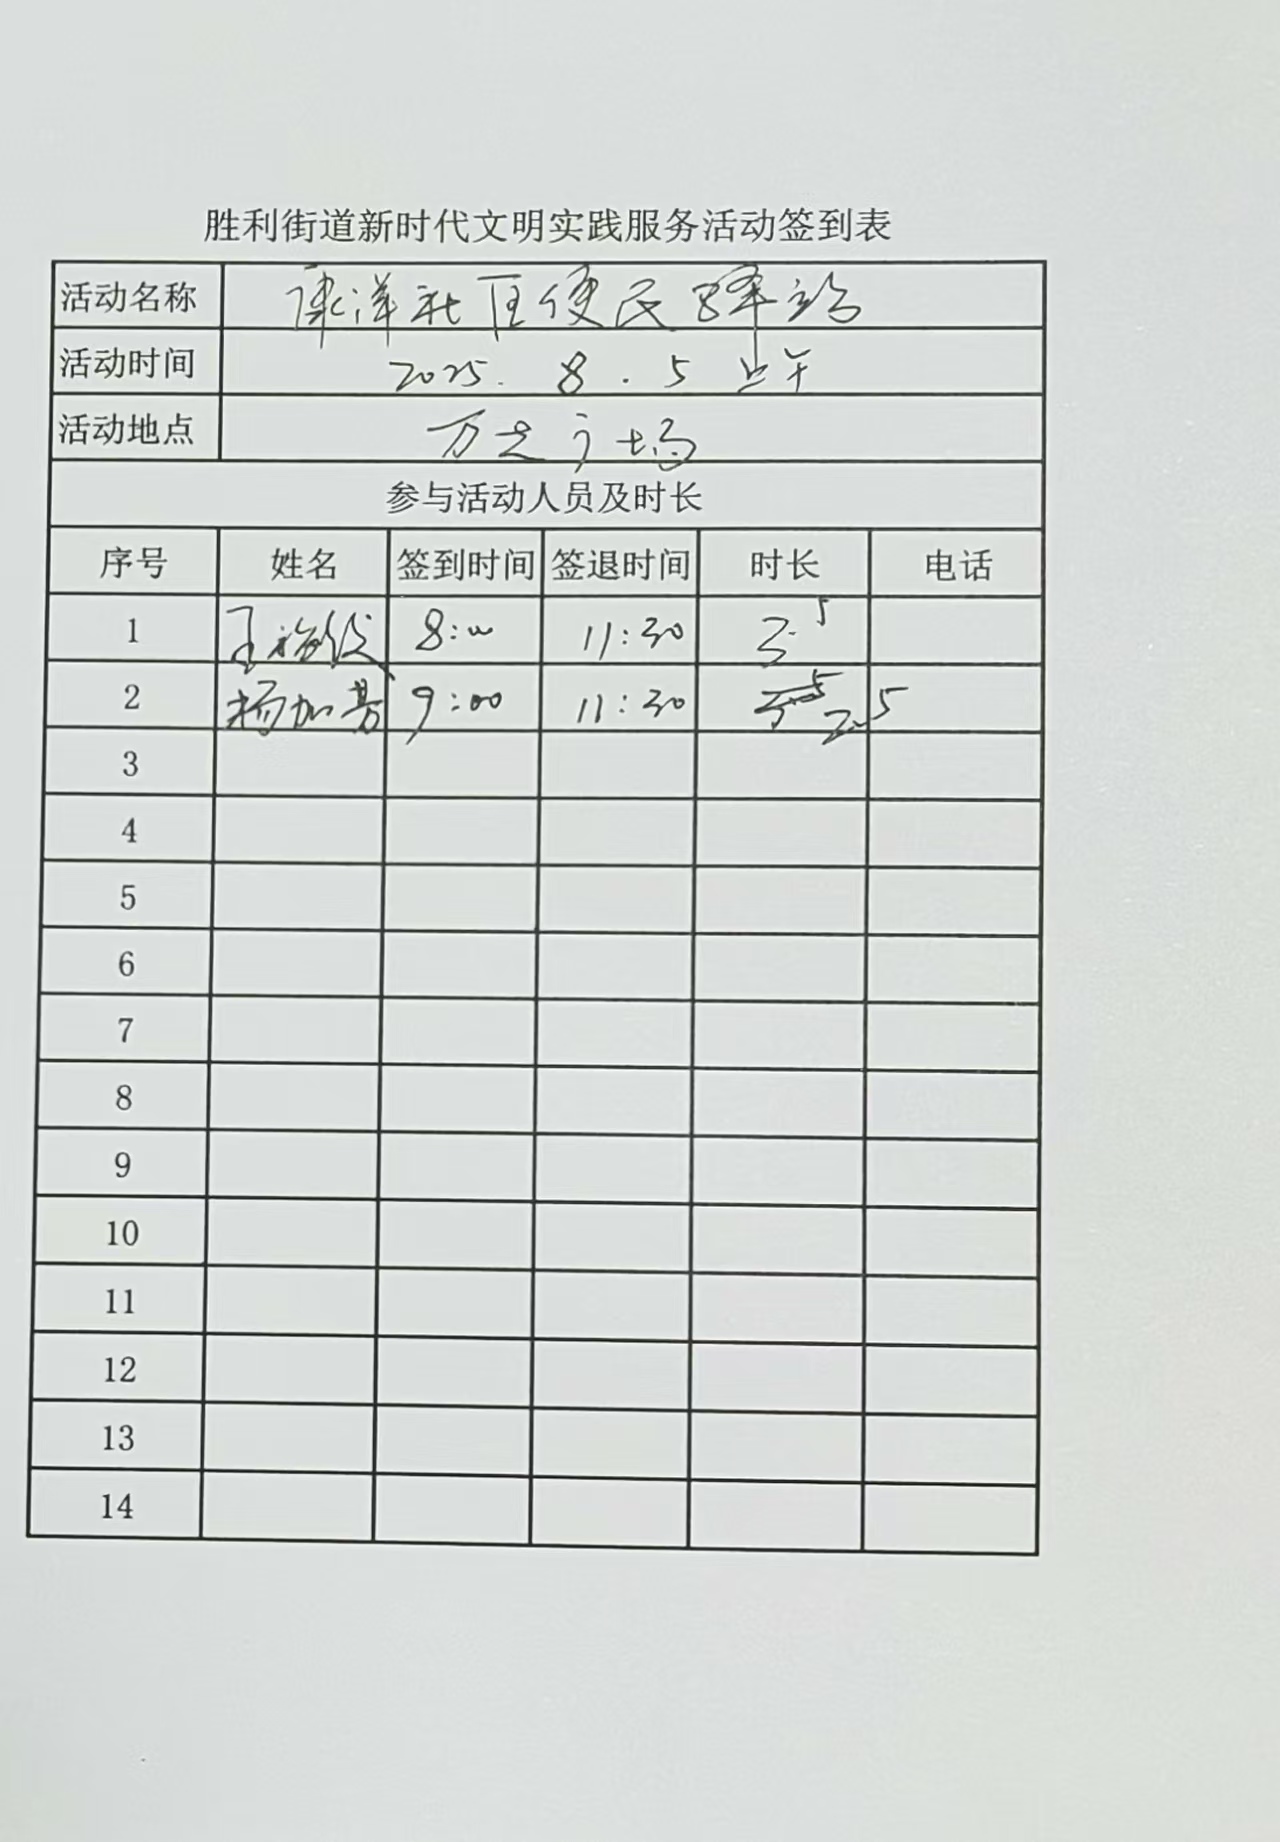 胜利街道新时代文明实践服务活动签到表
活动名称 康洋社区便民驿站
活动时间 2025. 8 . 5 上午
活动地点 万达广场
参与活动人员及时长
序号 姓名 签到时间 签退时间 时长 电话
1 王 8:00 11:30 3.5
2 杨加芳 9:00 11:30 2.5
3
4
5
6
7
8
9
10
11
12
13
14